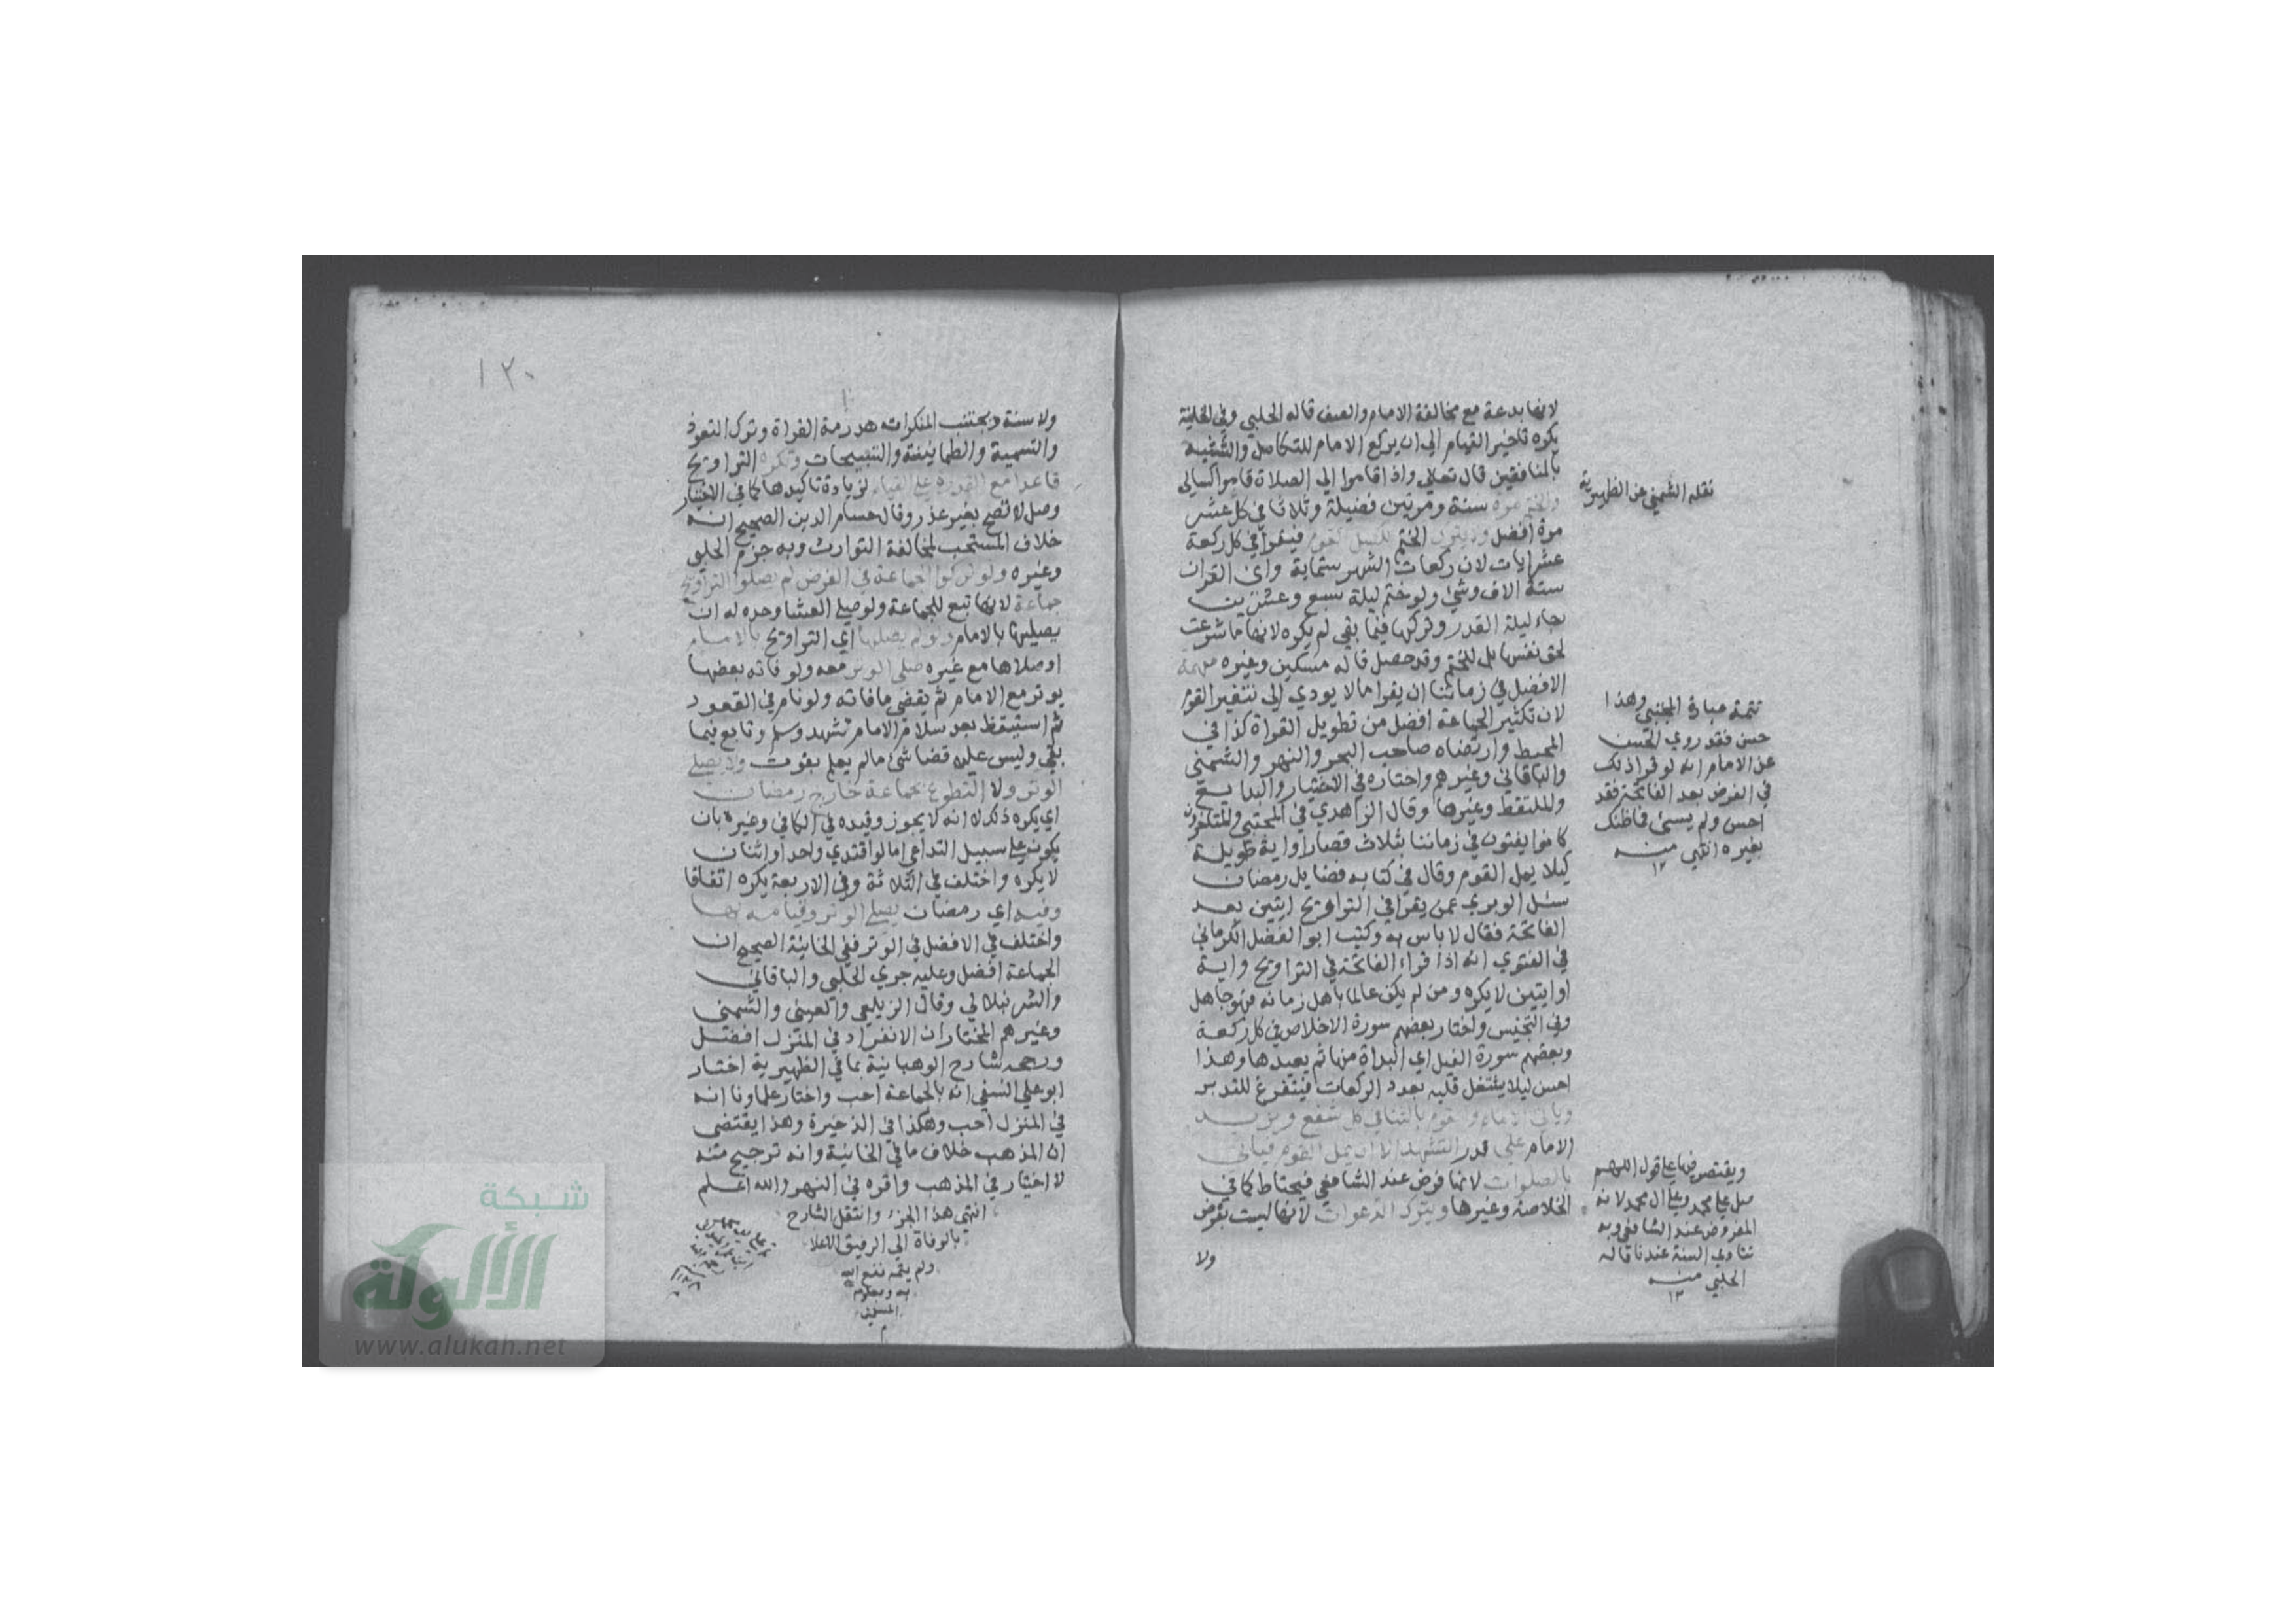 لانها بدعة مع مخالفة الامام والصف قاله الحلبي وفي الخانية
يكره تاخير القيام الي ان يركع الامام للتكاسل والتشبيه
بالمنافقين قال تعالي واذا قاموا الي الصلاة قاموا كسالي
والختم مرة سنة ومرتين فضيلة وثلاثا في كل عشر
مرة افضل ولا يترك الختم لكسل القوم فيقرا في كل ركعة
عشر ايات لان ركعات الشهر ستماية واي القران
ستة الاف وشي ولو ختم ليلة سبع وعشرين
رجاء ليلة القدر وتركها فيما بقي لم يكره لانها ما شرعت
لحق نفسها بل للختم وقد حصل قاله مسكين وغيره مهمة
الافضل في زماننا ان يقرا ما لا يودي الي تنفير القوم
لان تكثير الجماعة افضل من تطويل القراة كذا في
المحيط وارتضاه صاحب البحر والنهر والشمني
والباقاني وغيرهم واختاره في الاختيار والبدايع
والملتقط وغيرها وقال الزاهدي في المجتبي والمتاخرون
كانوا يفتون في زماننا بثلاث قصار او اية طويلة
كيلا يمل القوم وقال في كتابه فضايل رمضان
سئل الوبري عمن يقرا في التراويح ايتين بعد
الفاتحة فقال لا باس به وكتب ابو الفضل الكرماني
في الفتوي انه اذا قراء الفاتحة في التراويح واية
او ايتين لا يكره ومن لم يكن عالما باهل زمانه فهو جاهل
وفي التجنيس واختار بعضهم سورة الاخلاص في كل ركعة
وبعضهم سورة الفيل اي البداة منها ثم يعيدها وهذا
احسن ليلا يشتغل قلبه بعدد الركعات فيتفرغ للتدبر
وياتي الامام والقوم بالثنا في كل شفع ويزيد
الامام علي قدر التشهد الا ان يمل القوم فياتي
بالصلوات لانها فرض عند الشافعي فيحتاط كما في
الخلاصة وغيرها ويترك الدعوات لانها ليست بفرض
ولا
نقله الشمني عن الظهيرية
تتمة عبارة المجتبي وهذا
حسن فقد روي الحسن
عن الامام انه لو قرا ذلك
في الفرض بعد الفاتحة فقد
احسن ولم يسئ فما ظنك
بغيره انتهي منه
١٢
ويقتصر فيها علي قول اللهم
صل علي محمد وعلي ال محمد لانه
المفروض عند الشافعي وبه
تتادي السنة عندنا قاله
الحلبي منه
١٢
١٢٠
ولا سنة ويجتنب المنكرات هدرمة القراة وترك التعوذ
والتسمية والطمانينة والتسبيحات وتكره التراويح
قاعدا مع القدرة علي القيام لزيادة تاكيدها كما في الاختيار
وصل لا تصح بغير عذر وقال حسام الدين الصحيح انه
خلاف المستحب لمخالفة التوارث وبه جزم الحلبي
وغيره ولو تركوا الجماعة في الفرض لم يصلوا التراويح
جماعة لانها تبع للجماعة ولو صلي العشا وحده له ان
يصليها بالامام ولو لم يصلها اي التراويح بالامام
او صلاها مع غيره صلي الوتر معه ولو فاته بعضها
يوتر مع الامام ثم يقضي ما فاته ولو نام في القعود
ثم استيقظ بعد سلام الامام تشهد وسلم وتابع فيما
بقي وليس عليه قضا شئ ما لم يعلم بفوت ولا يصلي
الوتر ولا التطوع بجماعة خارج رمضان
اي يكره ذلك لا انه لا يجوز وقيده في الكافي وغيره بان
يكون علي سبيل التداعي اما لو اقتدي واحد او اثنان
لا يكره واختلف في الثلاثة وفي الاربعة يكره اتفاقا
وفيه اي رمضان يصلي الوتر وقيامه بها
واختلف في الافضل في الوتر ففي الخانية الصحيح ان
الجماعة افضل وعليه جري الحلبي والباقاني
والشرنبلالي وقال الزيلعي والعيني والشمني
وغيرهم المختار ان الانفراد في المنزل افضل
ورجحه شارح الوهبانية بما في الظهيرية اختار
ابو علي النسفي انه بالجماعة احب واختار علماونا انه
في المنزل احب وهكذا في الذخيرة وهذا يقتضي
ان المذهب خلاف ما في الخانية وانه ترجيح منه
لا اختيار في المذهب واقره في النهر والله اعلم
انتهي هذا الجزء وانتقل الشارح
بالوفاة الي الرفيق الاعلا
ولم يتمه نفع الله
به وبعلومه
المسلمين
م
شبكة
الألوكة
www.alukah.net